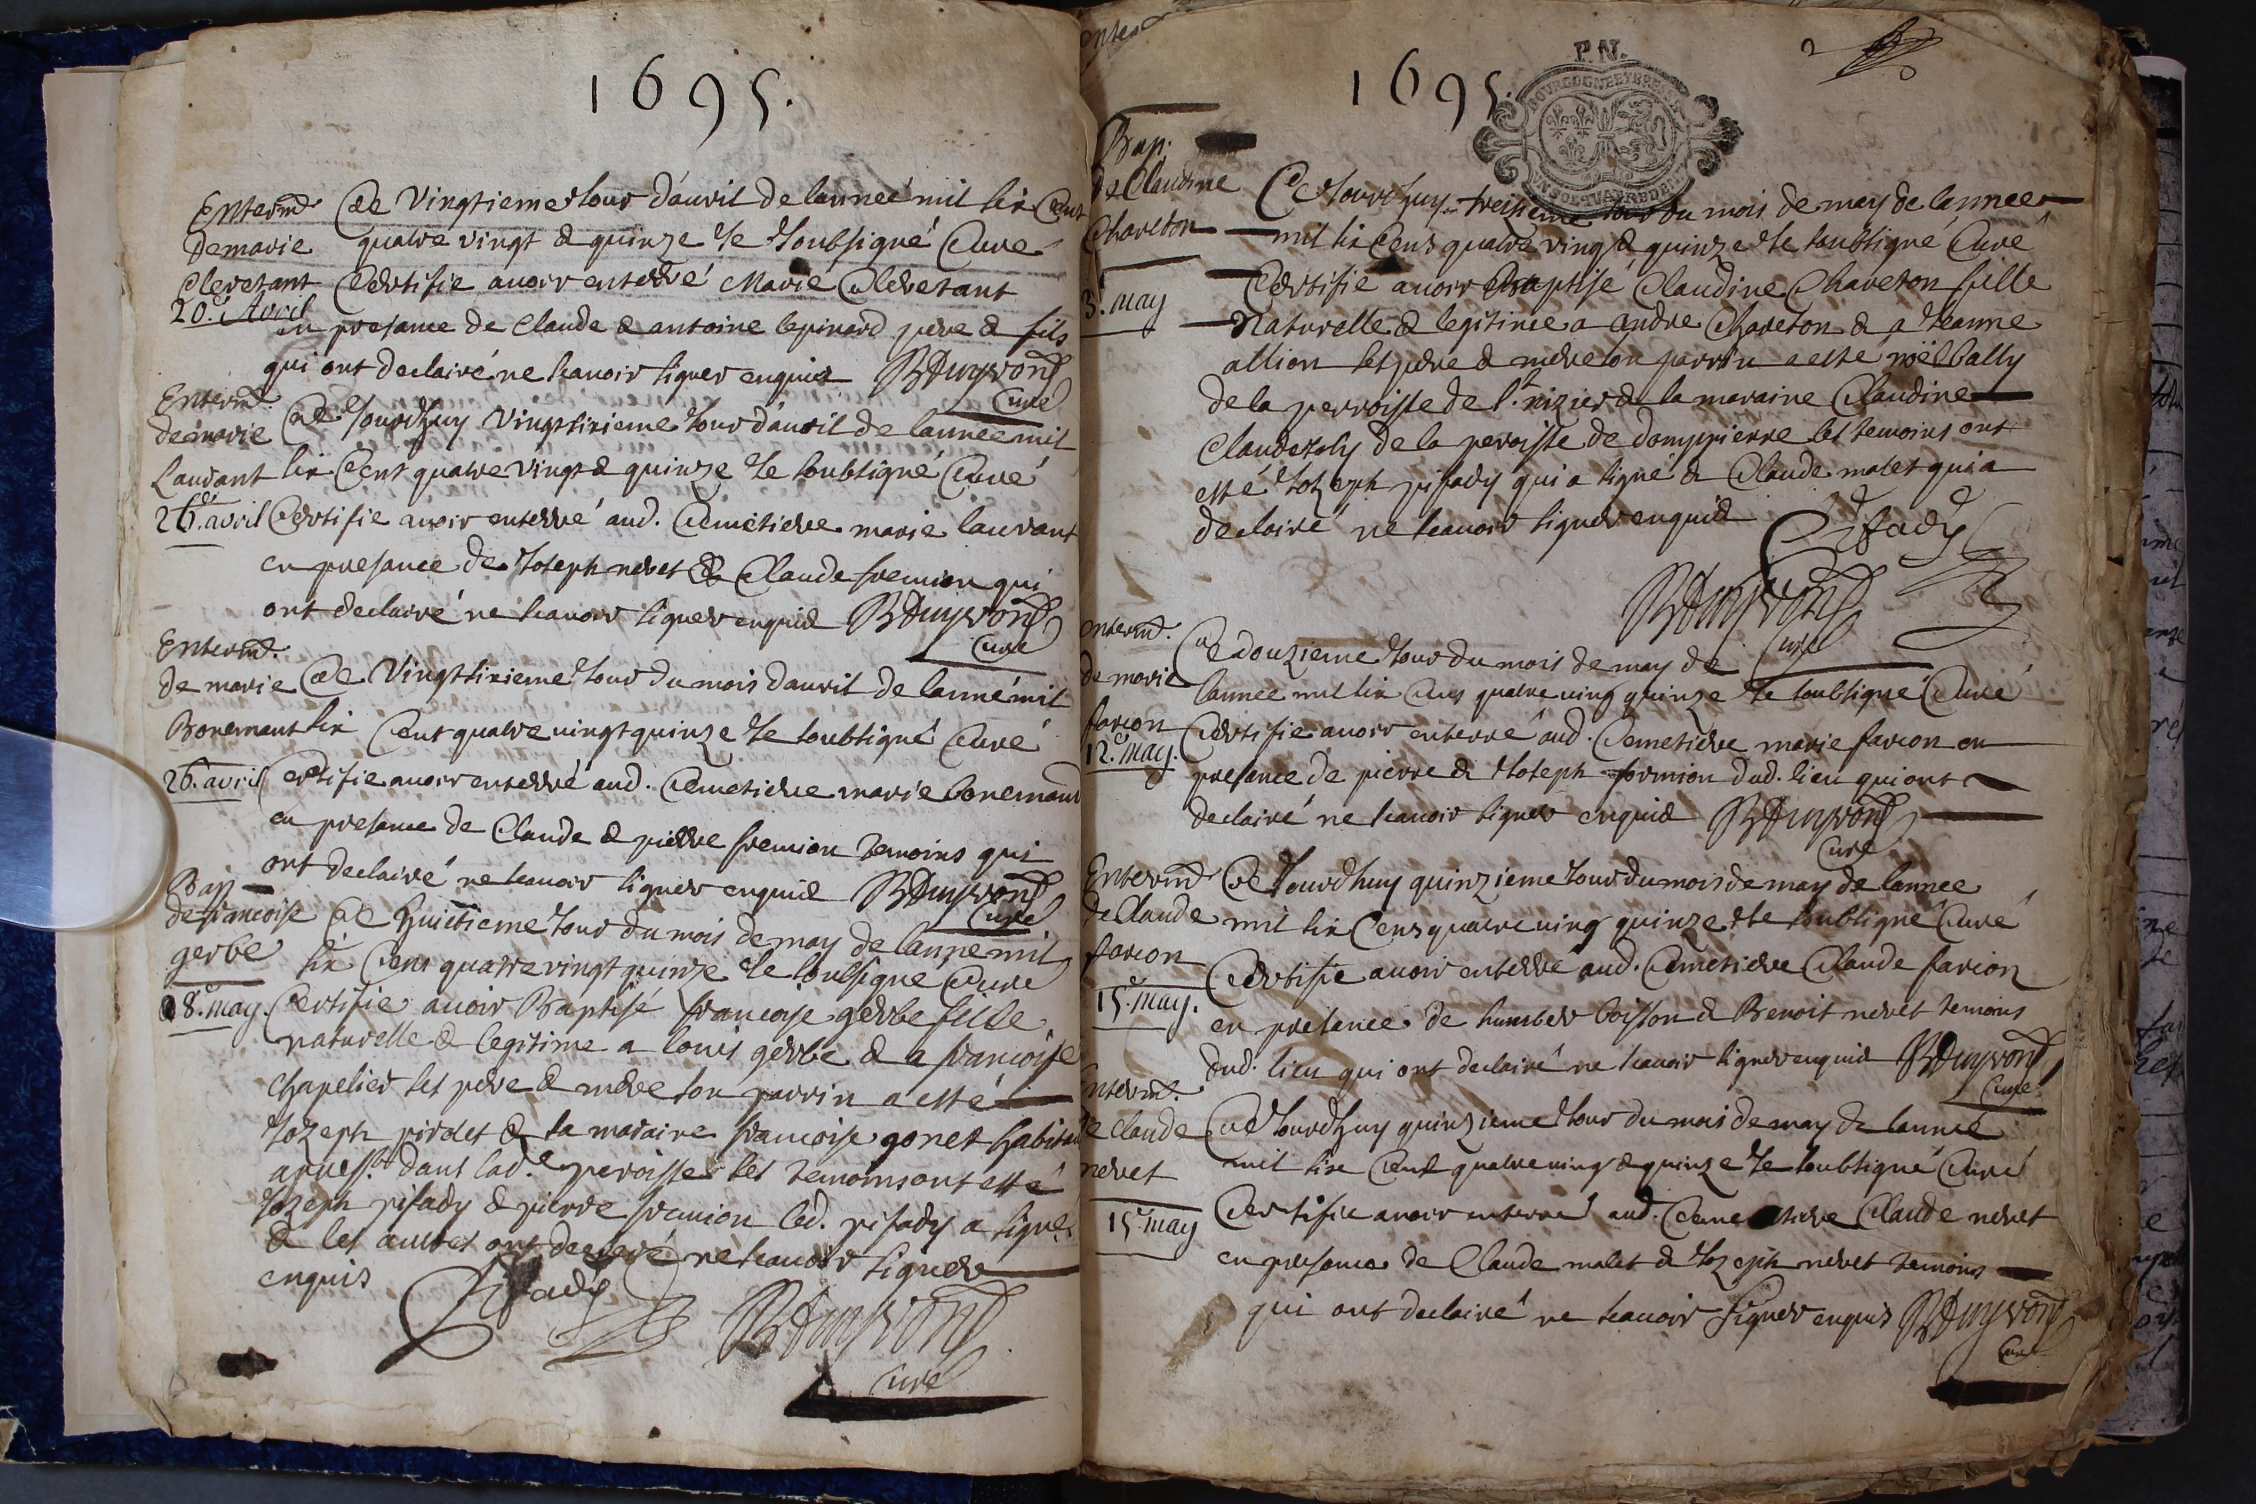 1695.
Entermt
de marie
Cleretant
20.e Avril
Ce Vingtieme Jour d'auril de lanneé mil six Cent
quatre vingt & quinze Je Soubsigné Curé
Certifie auoir enterré Marie Cleretant
en presance de Claude & antoine lepinard pere & fils
qui ont declairé ne scauoir signer enquis
Curé
Entermt.
de marie
Laurant
26.e avril
Ce Jourdhuy Vingtsixieme Jour d'auril de lanneé mil
six Cent quatre vingt & quinze Je soubsigné Curé
Certifie auoir enterré aud. Cemetiere marie laurant
en presance de Joseph neret & Claude fremion qui
ont declairé ne scauoir signer enquis
Curé
Entermt.
de marie
Bonemant
26. avril
Ce Vingtsixieme Jour du mois dauril de lanné mil
six Cent quatre uingt quinze Je soubsigné Curé
Certifie auoir enterré aud. Cemetiere marie bonemant
en presance de Claude & pierre fremion temoins qui
ont declairé ne scauoir signer enquis
Curé
Bap
de francoise
gerbe
8.e may.
Ce huictieme Jour du mois de may de lanné mil
six Cens quatre vingt quinze Je soubsigné Curé
Certifie auoir Baptisé francoise gerbe fille
naturelle & legitime a louis gerbe & a francoise
Chapelier ses pere & mere son parrin a esté
Jozeph pirolet & sa maraine francoise gonet
dans lad.e peroisse les temoins ont esté
Jozeph pifady & pierre fremion led. pifady a signé
& les autres ont declairé ne scauoir signer
enquis
Pifady
Curé
1695.
P.N.
2
Bap.
de Claudine
Chareton
3.e may
Ce Jourdhuy treisieme Jour du mois de may de lannee
mil six Cens quatre ving & quinze Je soubsigné Curé
Certifie auoir Baptisé Claudine Chareton fille
Naturelle & legitimee a andre Chareton & a Jeanne
allion ses pere & mere son parrin a esté noël bally
de la perroisse de St. nizier & la maraine Claudine
Claudetoly de la peroisse de dompierre les temoins ont
esté Jozeph pifady qui a signé & Claude malet qui a
declairé ne scauoir signer enquis
Pifady
Curé
Entermt.
de marie
farion
12.e may.
Ce douzieme Jour du mois de may de
lannee mil six Cens quatre uing quinze Je soubsigné Curé
Certifie auoir enterré aud. Cemetiere marie farion en
presance de pierre & Joseph formion dud. lieu qui ont
declairé ne scauoir signer enquis
Curé
Entermt
de Claude
farion
15.e may.
Ce Jourdhuy quinzieme Jour du mois de may de lannee
mil six Cens quatre uing quinze Je soubsigné Curé
Certifie auoir enterré aud. Cemetiere Claude farion
en presance de humber boisson & Benoit neret temoins
dud. lieu qui ont declairé ne scauoir signer enquis
Curé
Entermt.
de claude
neret
15.e may
Ce Jourdhuy quinzieme Jour du mois de may de lanneé
mil six Cent quatre uing & quinze Je soubsigné Curé
Certifie auoir enterré aud. Cemetiere Claude neret
en presance de Claude malet & Jozeph neret temoins
qui ont declairé ne scauoir signer enquis
Curé